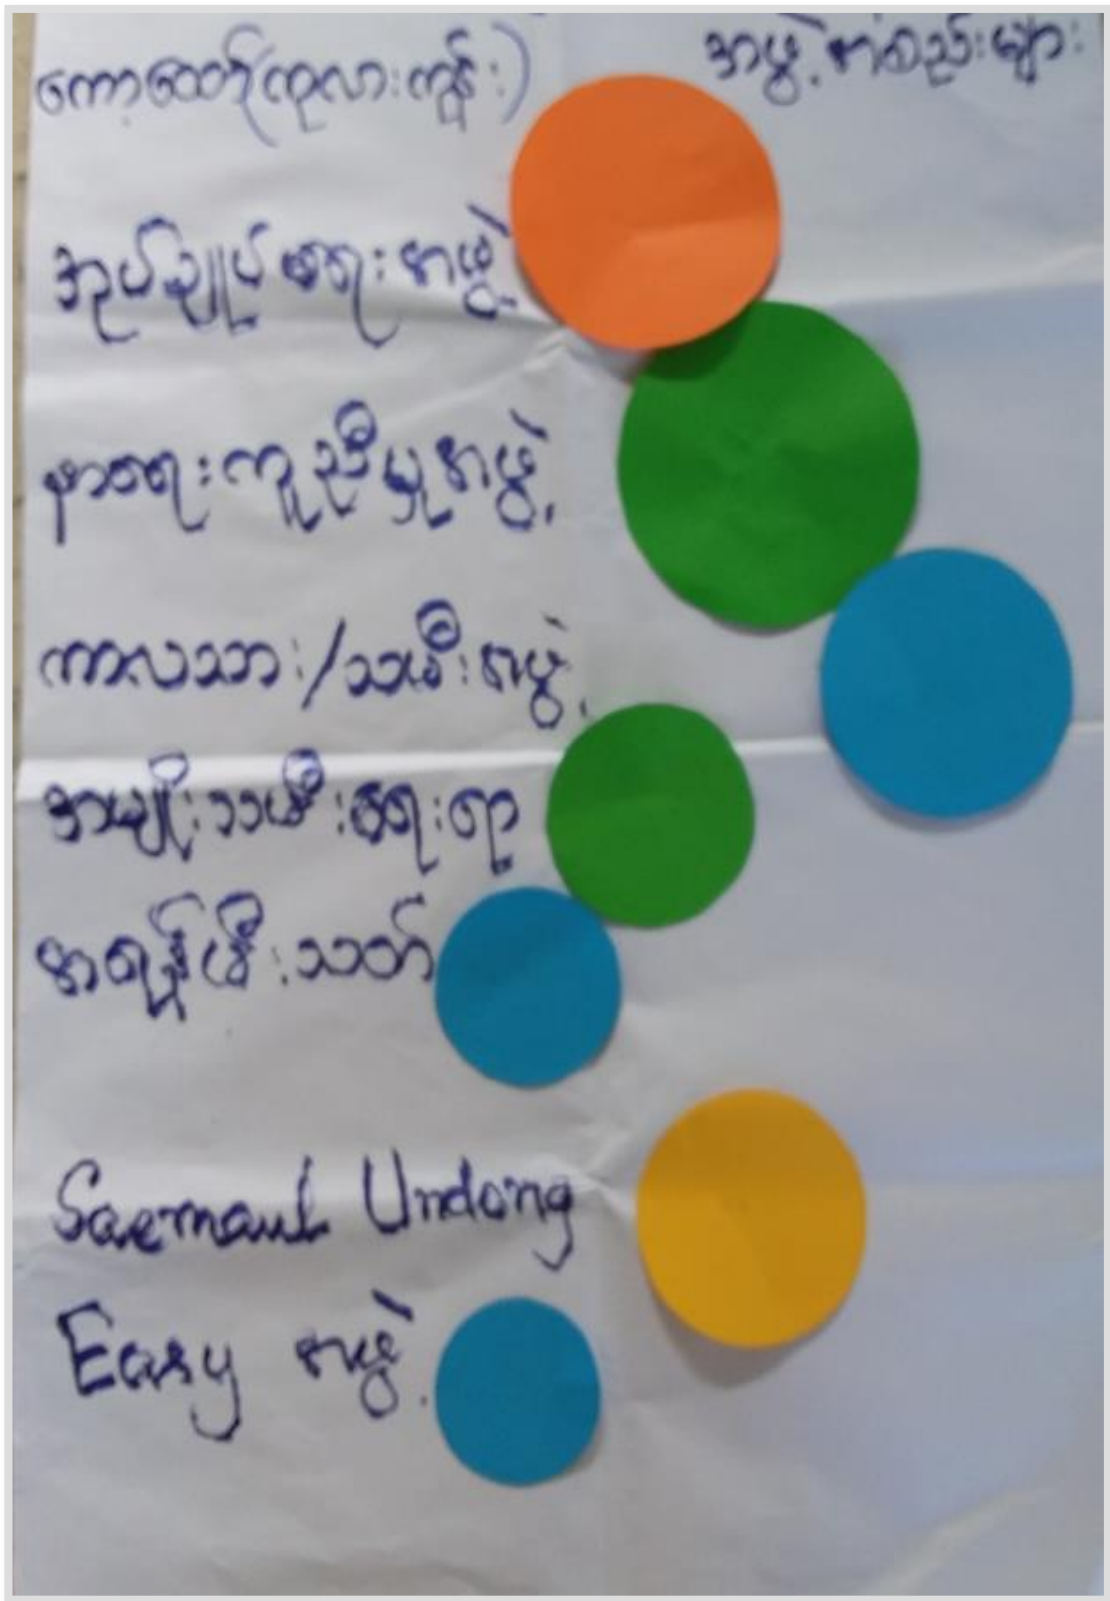 ကော့ထော်(ကုလားကျွန်း) အဖွဲ့အစည်းများ
အုပ်ချုပ်ရေးအဖွဲ့
နာရေးကူညီမှုအဖွဲ့
ကာလသား/သမီးအဖွဲ့
အမျိုးသမီးရေးရာ
အရန်မီးသတ်
Saemaul Undong
Easy အဖွဲ့